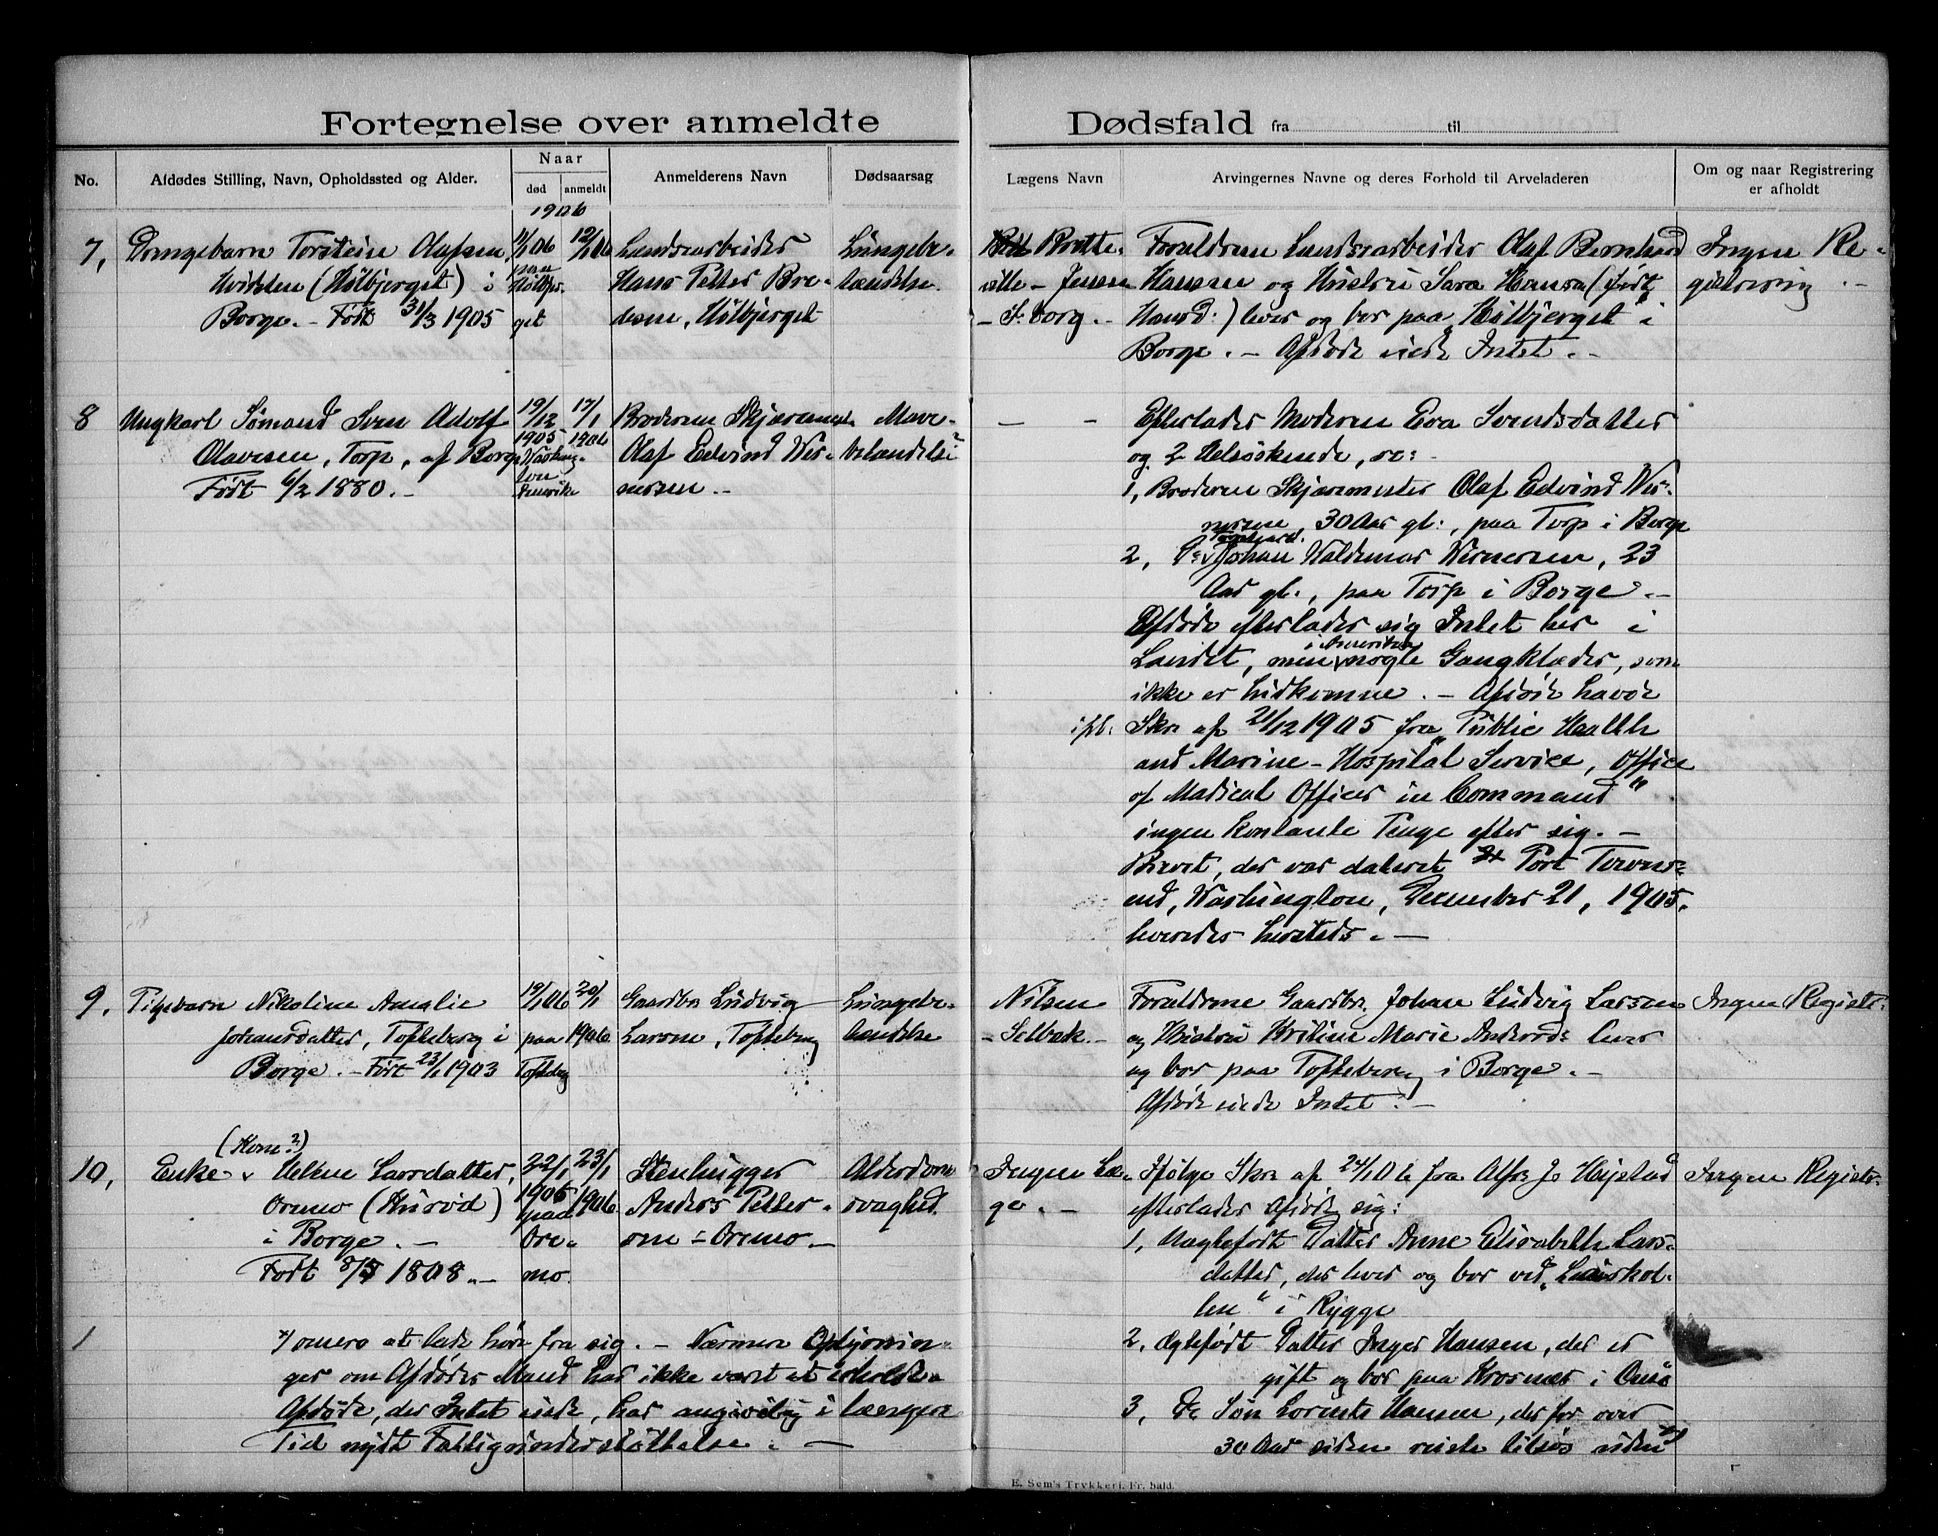 Fortegnelse over anmeldte Dødsfald fra til
No.
Afdødes Stilling, Navn, Opholdssted og Alder.
Naar
død
anmeldt
Anmelderens Navn
Dødsaarsag
Lægens Navn
Arvingernes Navne og deres Forhold til Arveladeren
Om og naar Registrering
er afholdt
1906
7,
Drengebarn Torstein Olafsen
(Hölbjerget) i
Borge. – Født 31/3 1905
11/1 06
paa
Hölbjer-
get
12/1 06
Landsarbeider
Hans Petter Bre-
desen, Hölbjerget
Lungebe-
tændelse.
Jensen
– F.borg. –
Forældrene Landsarbeider Olaf Bernhard
Hansen og Hustru Sara Hansa (født
Hansd:) lever og bor paa Hölbjerget i
Borge. – Afdöde eiede Intet. –
Ingen Re-
gistrering. –
8
Ungkarl Sømand Sven Adolf
Olavesen, Torp, af Borge
Født 6/2 1880. –
19/12
1905
Washing-
ton
Amerika
17/1
1906
Broderen Skjærmester
Olaf Edvind Wer-
nersen. –
Mave-
betændelse
– –
Efterlader Moderen Eva Svendsdatter
og 2 Helsöskende, s:
1, Broderen Skjærmester Olaf Edvind Wer-
nersen, 30 Aar gl:, paa Torp i Borge
2, Do Johan Waldemar Wernersen, 23
Aar gl:, paa Torp i Borge. –
Afdöde efterlader sig Intet her i
Landet, men i Amerika nogle Gangklæder, som
ikke er hidkomne. – Afdöde havde
ifl: Skr. af 21/12 1905 fra „Public Health
and Marine-Hospital Service, Office
of Medical Officer in Command"
ingen kontante Penge efter sig. –
Brevet, der var dateret Port Towns-
end, Washington, December 21, 1905,
hersteds. –
9,
Pigebarn Nikoline Amalie
Johansdatter, Tofteberg i
Borge. – Født 23/1 1903
19/1 06
paa
Tofteberg
20/1
1906
Gaardbr. Ludvig
Larsen, Tofteberg
Lungebe-
tændelse
Nilsen
– Selbak. –
Forældrene Gaardbr. Johan Ludvig Larsen
og Hustru Kristine Marie Andersd: lever
og bor paa Tofteberg i Borge. –
Afdöde eiede Intet. –
Ingen Registr.
10,
(Kone?)
Enke v Helene Larsdatter,
Oremo (Huröd)
i Borge. –
Født 8/5 1808. –
22/1
1906
paa
Ore-
mo
23/1
1906
Stenhugger
Anders Petter-
sen – Oremo. –
Alderdoms
svaghed
Ingen Læ-
ge. –
Ifølge Skr. af 24/1 06 fra
efterlader Afdöde sig:
1, Uægtefødt Datter Anne Elisabeth Lars-
datter, der lever og bor ved
i Rygge
2, Ægtefødt Datter Inger Hansen, der er
gift og bor paa Krosnæs i Onsö
3, Do Søn Hansen, der for over
30 Aar siden reiste tilsøs uden
Ingen Registr.
senere at lade höre fra sig. – Nærmere Oplysnin-
ger om Afdödes Mand har ikke været at erholde.
Afdöde, der Intet eiede, har angivelig i længere
Tid nydt Fattigunderstöttelse. –
E. Sem's Trykkeri, Fr.hald.